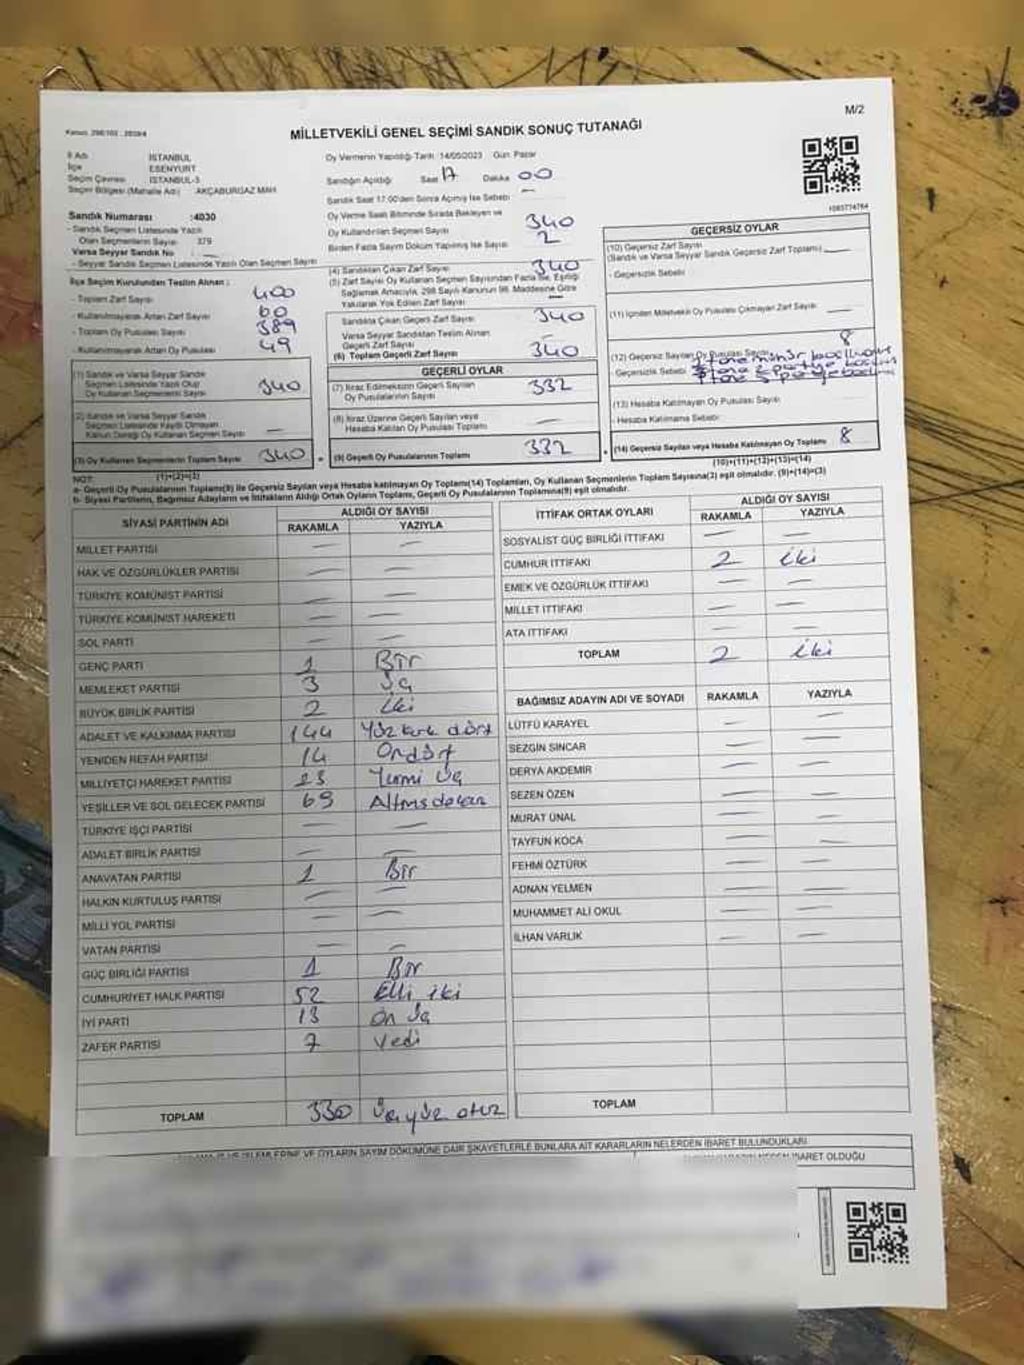 M/2
MİLLETVEKİLİ GENEL SEÇİMİ SANDIK SONUÇ TUTANAĞI
İl Adı İSTANBUL
İlçe ESENYURT
Seçim Çevresi İSTANBUL-3
Seçim Bölgesi (Mahalle Adı) AKÇABURGAZ MAH
Sandık Numarası :4030
- Sandık Seçmen Listesinde Yazılı
Olan Seçmenlerin Sayısı 379
Varsa Seyyar Sandık No
- Seyyar Sandık Seçmen Listesinde Yazılı Olan Seçmen Sayısı
Oy Vermenin Yapıldığı Tarih :14/05/2023 Gün: Pazar
Sandığın Açıldığı Saat 17 Dakika 00
Sandık Saat 17:00'den Sonra Açılmış İse Sebebi —
Oy Verme Saati Bitiminde Sırada Bekleyen ve
Oy Kullandırılan Seçmen Sayısı 340
Birden Fazla Sayım Döküm Yapılmış İse Sayısı 2
İlçe Seçim Kurulundan Teslim Alınan :
- Toplam Zarf Sayısı 400
- Kullanılmayarak Artan Zarf Sayısı 60
- Toplam Oy Pusulası Sayısı 389
- Kullanılmayarak Artan Oy Pusulası 49
(1) Sandık ve Varsa Seyyar Sandık
Seçmen Listesinde Yazılı Olup
Oy Kullanan Seçmenlerin Sayısı 340
(2) Sandık ve Varsa Seyyar Sandık
Seçmen Listesinde Kayıtlı Olmayan
Kanun Gereği Oy Kullanan Seçmen Sayısı —
(3) Oy Kullanan Seçmenlerin Toplam Sayısı 340
(1)+(2)=(3)
(4) Sandıktan Çıkan Zarf Sayısı 340
(5) Zarf Sayısı Oy Kullanan Seçmen Sayısından Fazla İse, Eşitliği
Sağlamak Amacıyla, 298 Sayılı Kanunun 98. Maddesine Göre
Yakılarak Yok Edilen Zarf Sayısı —
Sandıkta Çıkan Geçerli Zarf Sayısı 340
Varsa Seyyar Sandıktan Teslim Alınan
Geçerli Zarf Sayısı
(6) Toplam Geçerli Zarf Sayısı 340
GEÇERLİ OYLAR
(7) İtiraz Edilmeksizin Geçerli Sayılan
Oy Pusulalarının Sayısı 332
(8) İtiraz Üzerine Geçerli Sayılan veya
Hesaba Katılan Oy Pusulası Toplamı —
(9) Geçerli Oy Pusulalarının Toplamı 332
1093774764
GEÇERSİZ OYLAR
(10) Geçersiz Zarf Sayısı
(Sandık ve Varsa Seyyar Sandık Geçersiz Zarf Toplamı)
- Geçersizlik Sebebi
(11) İçinden Milletvekili Oy Pusulası Çıkmayan Zarf Sayısı
(12) Geçersiz Sayılan Oy Pusulası Sayısı 8
- Geçersizlik Sebebi
(13) Hesaba Katılmayan Oy Pusulası Sayısı
- Hesaba Katılmama Sebebi
(14) Geçersiz Sayılan veya Hesaba Katılmayan Oy Toplamı 8
(10)+(11)+(12)+(13)=(14)
NOT:
a- Geçerli Oy Pusulalarının Toplamı(9) ile Geçersiz Sayılan veya Hesaba Katılmayan Oy Toplamı(14) Toplamları, Oy Kullanan Seçmenlerin Toplam Sayısına(3) eşit olmalıdır. (9)+(14)=(3)
b- Siyasi Partilerin, Bağımsız Adayların ve İttifakların Aldığı Ortak Oyların Toplamı, Geçerli Oy Pusulalarının Toplamına(9) eşit olmalıdır.
SİYASİ PARTİNİN ADI ALDIĞI OY SAYISI
RAKAMLA YAZIYLA
MİLLET PARTİSİ — —
HAK VE ÖZGÜRLÜKLER PARTİSİ — —
TÜRKİYE KOMÜNİST PARTİSİ — —
TÜRKİYE KOMÜNİST HAREKETİ — —
SOL PARTİ — —
GENÇ PARTİ 1 Bir
MEMLEKET PARTİSİ 3 Üç
BÜYÜK BİRLİK PARTİSİ 2 iki
ADALET VE KALKINMA PARTİSİ 144 Yüz kırk dört
YENİDEN REFAH PARTİSİ 14 Ondört
MİLLİYETÇİ HAREKET PARTİSİ 23 Yirmi Üç
YEŞİLLER VE SOL GELECEK PARTİSİ 69 Altmışdokuz
TÜRKİYE İŞÇİ PARTİSİ — —
ADALET BİRLİK PARTİSİ — —
ANAVATAN PARTİSİ 1 Bir
HALKIN KURTULUŞ PARTİSİ — —
MİLLİ YOL PARTİSİ — —
VATAN PARTİSİ — —
GÜÇ BİRLİĞİ PARTİSİ 1 Bir
CUMHURİYET HALK PARTİSİ 52 Elli iki
İYİ PARTİ 13 On Üç
ZAFER PARTİSİ 7 Yedi
TOPLAM 330 Üçyüz otuz
İTTİFAK ORTAK OYLARI ALDIĞI OY SAYISI
RAKAMLA YAZIYLA
SOSYALİST GÜÇ BİRLİĞİ İTTİFAKI — —
CUMHUR İTTİFAKI 2 iki
EMEK VE ÖZGÜRLÜK İTTİFAKI — —
MİLLET İTTİFAKI — —
ATA İTTİFAKI — —
TOPLAM 2 iki
BAĞIMSIZ ADAYIN ADI VE SOYADI RAKAMLA YAZIYLA
LÜTFÜ KARAYEL — —
SEZGİN SİNCAR — —
DERYA AKDEMİR — —
SEZEN ÖZEN — —
MURAT ÜNAL — —
TAYFUN KOCA — —
FEHMİ ÖZTÜRK — —
ADNAN YELMEN — —
MUHAMMET ALİ OKUL — —
İLHAN VARLIK — —
TOPLAM
İŞLEMLERİNE VE OYLARIN SAYIM DÖKÜMÜNE DAİR ŞİKAYETLERLE BUNLARA AİT KARARLARIN NELERDEN İBARET BULUNDUKLARI
NEDEN İBARET OLDUĞU